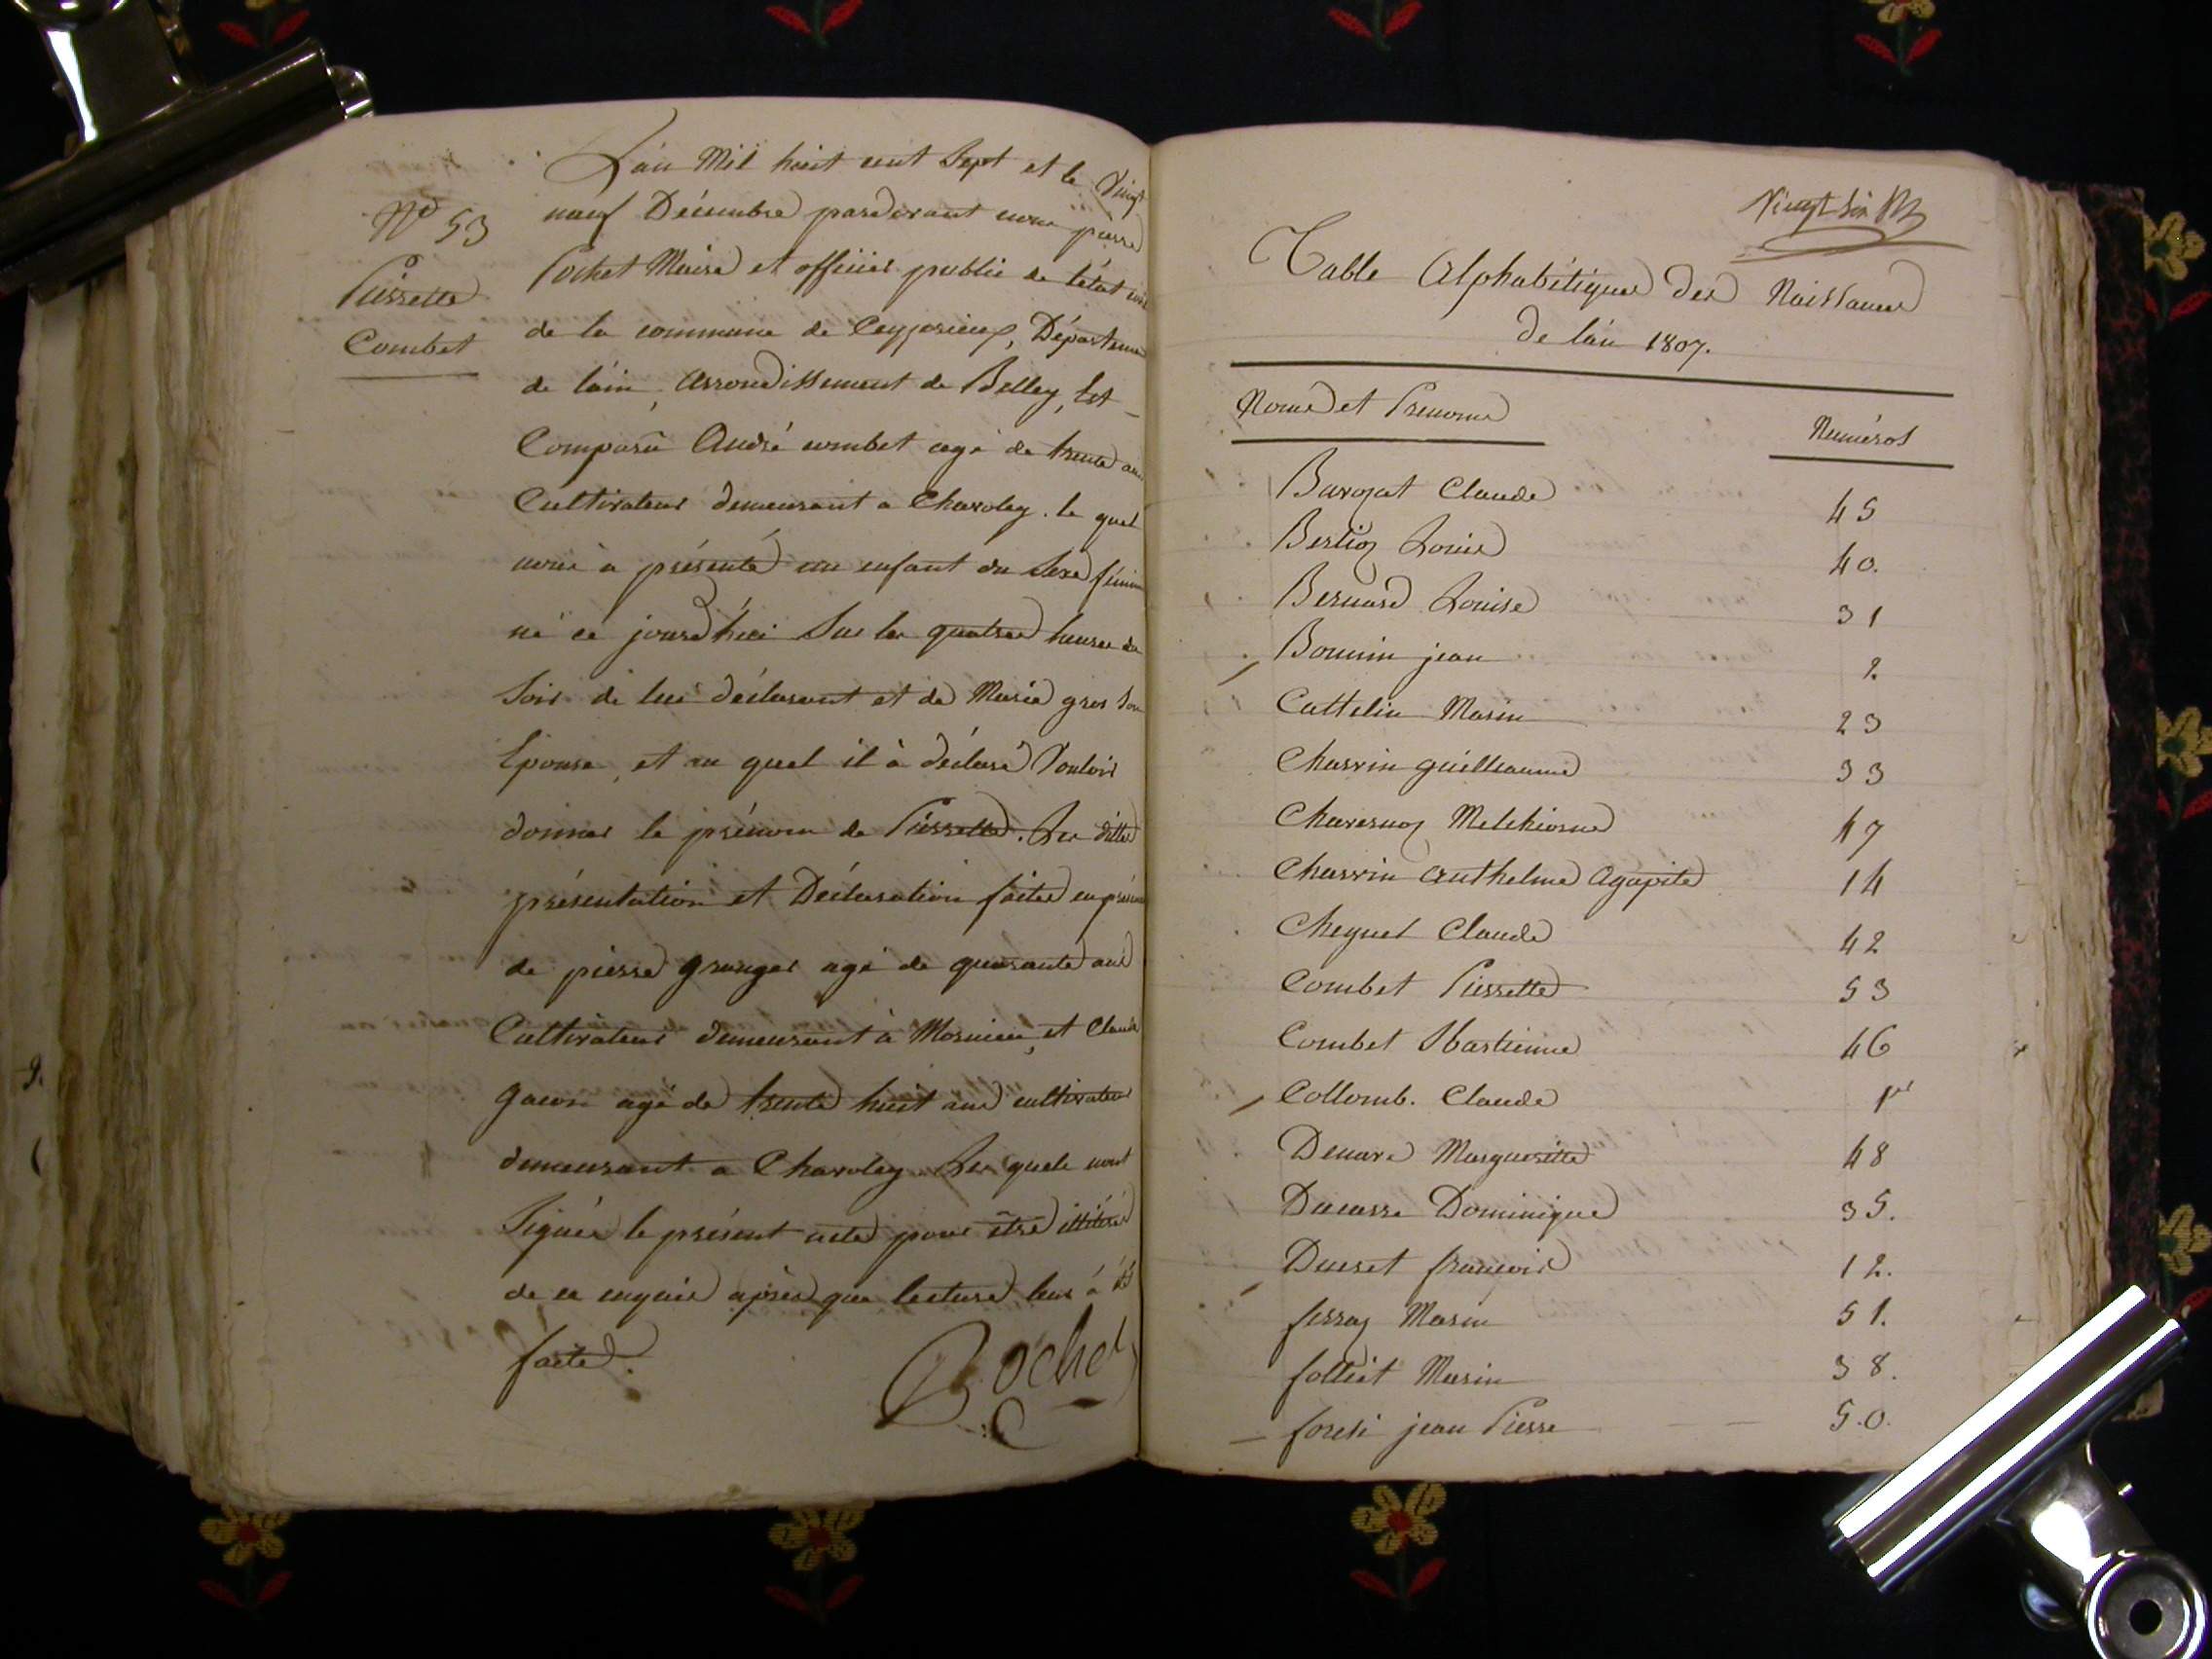 N° 53
Pierrette
Combet
L'an Mil huit cent Sept et le Vingt
neuf Décembre pardevant nous pierre
Pochet Maire et officier public de l'état civil
de la commune de Ceyzerieux, Département
de l'ain, arrondissement de Belley, Est
Comparû André combet agé de trente ans
Cultivateur demeurant a Charoley. le quel
nous à présenté un enfant du Sexe féminin
né ce jourd'hui Sur les quatres heures du
Soir de lui déclarant et de Marie gros Son
Epouse, et au quel il à déclaré Vouloir
donner le prénom de Pierrette. Les dittes
présentation et Déclaration faites en présence
de pierre granger agé de quarante ans
Cultivateur demeurant à Mornieu, et Claude
gacon agé de trente huit ans cultivateur
demeurant a Charoley Les quels n'ont
Signés le présent acte pour être illitérés
de ce enquis après que lecture leur à été
faite.
Bochet
Vingt Six
Table Alphabétique des Naissances
de l'an 1807.
Noms et Prenoms
Numéros
Barozat Claude 45
Berlioz Louis 40.
Bernard Louise 31
Bonnin jean 2.
Cattelin Marin 23
Charvin guilleaume 33
Chavernoz Melchiorne 47
Charvin Anthelme Agapite 14
Cheynel Claude 42
Combet Pierrette 53
Combet Sbastienne 46
Collomb. Claude 1er
Denare Marguerite 48
Ducarre Dominique 35.
Ducret françois 12.
ferraz Marin 51.
folliet Marin 38.
foresi jean Pierre 5.0.